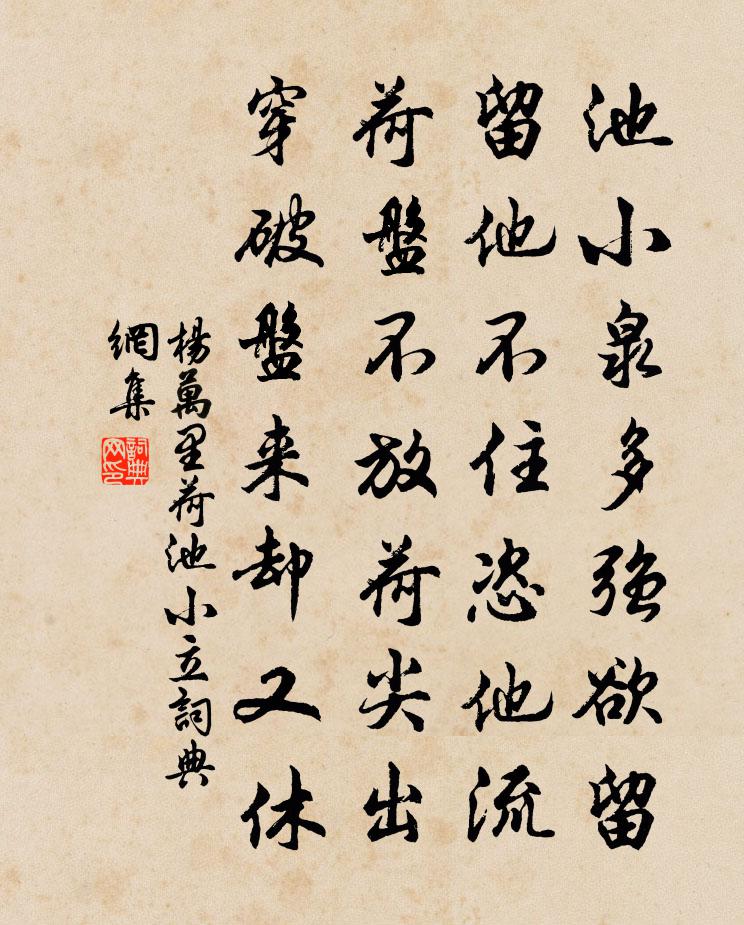 池小泉多強欲留
留他不住恣他流
荷盤不放荷尖出
穿破盤来却又休
楊萬里荷池小立詞典
網集
詞典
网印